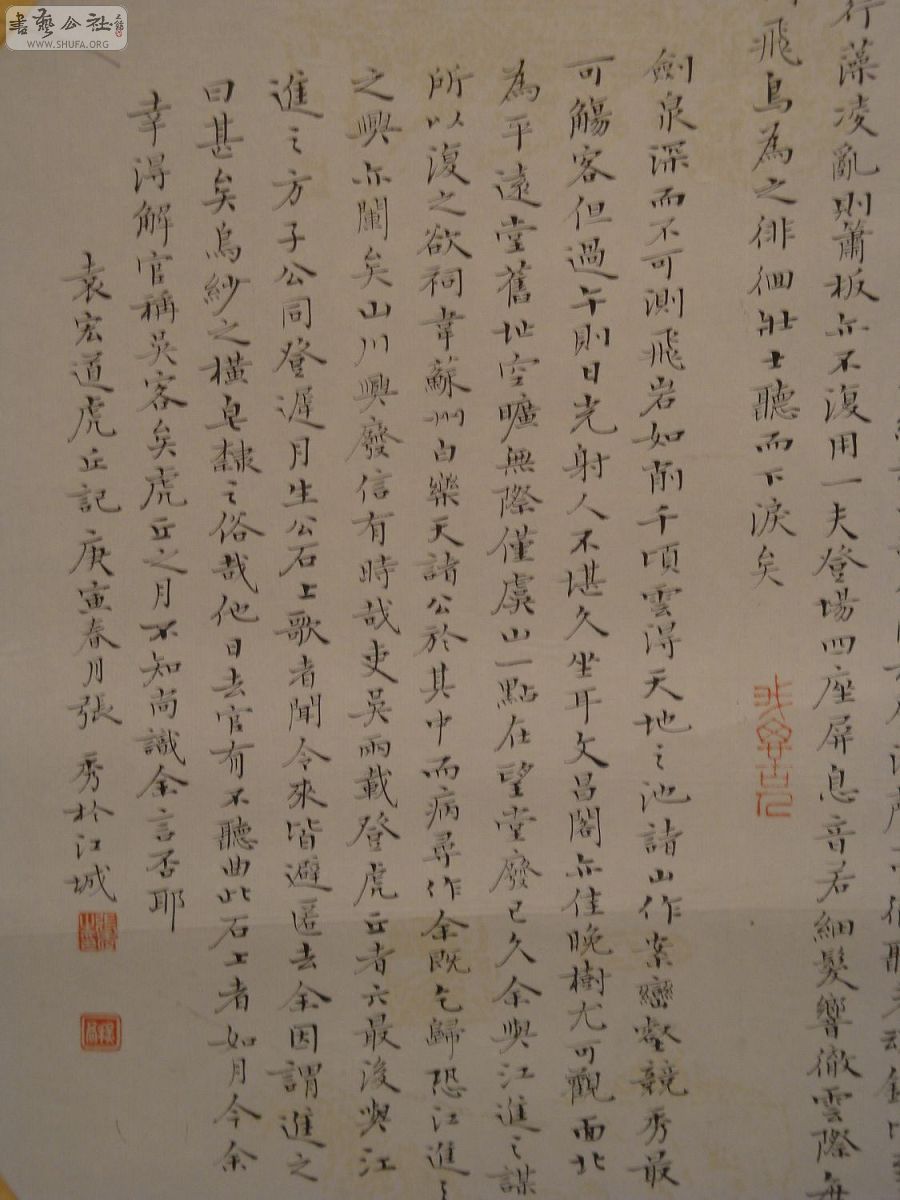 書藝公社
WWW.SHUFA.ORG
行藻凌亂則簫板亦不復用一夫登場四座屏息音若細髮響徹雲際每
飛鳥為之徘徊壯士聽而下淚矣
劍泉深而不可測飛岩如削千頃雲得天地之池諸山作案巒壑競秀最
可觴客但過午則日光射人不堪久坐耳文昌閣亦佳晚樹尤可觀面北
為平遠堂舊址空曠無際僅虞山一點在望堂廢已久余與江進之謀
所以復之欲祠韋蘇州白樂天諸公於其中而病尋作余既乞歸恐江進之
之興亦闌矣山川興廢信有時哉吏吳兩載登虎丘者六最後與江
進之方子公同登遲月生公石上歌者聞令來皆避匿去余因謂進之
曰甚矣烏紗之橫皂隸之俗哉他日去官有不聽曲此石上者如月今余
幸得解官稱吳客矣虎丘之月不知尚識余言否耶
袁宏道虎丘記庚寅春月張秀於江城